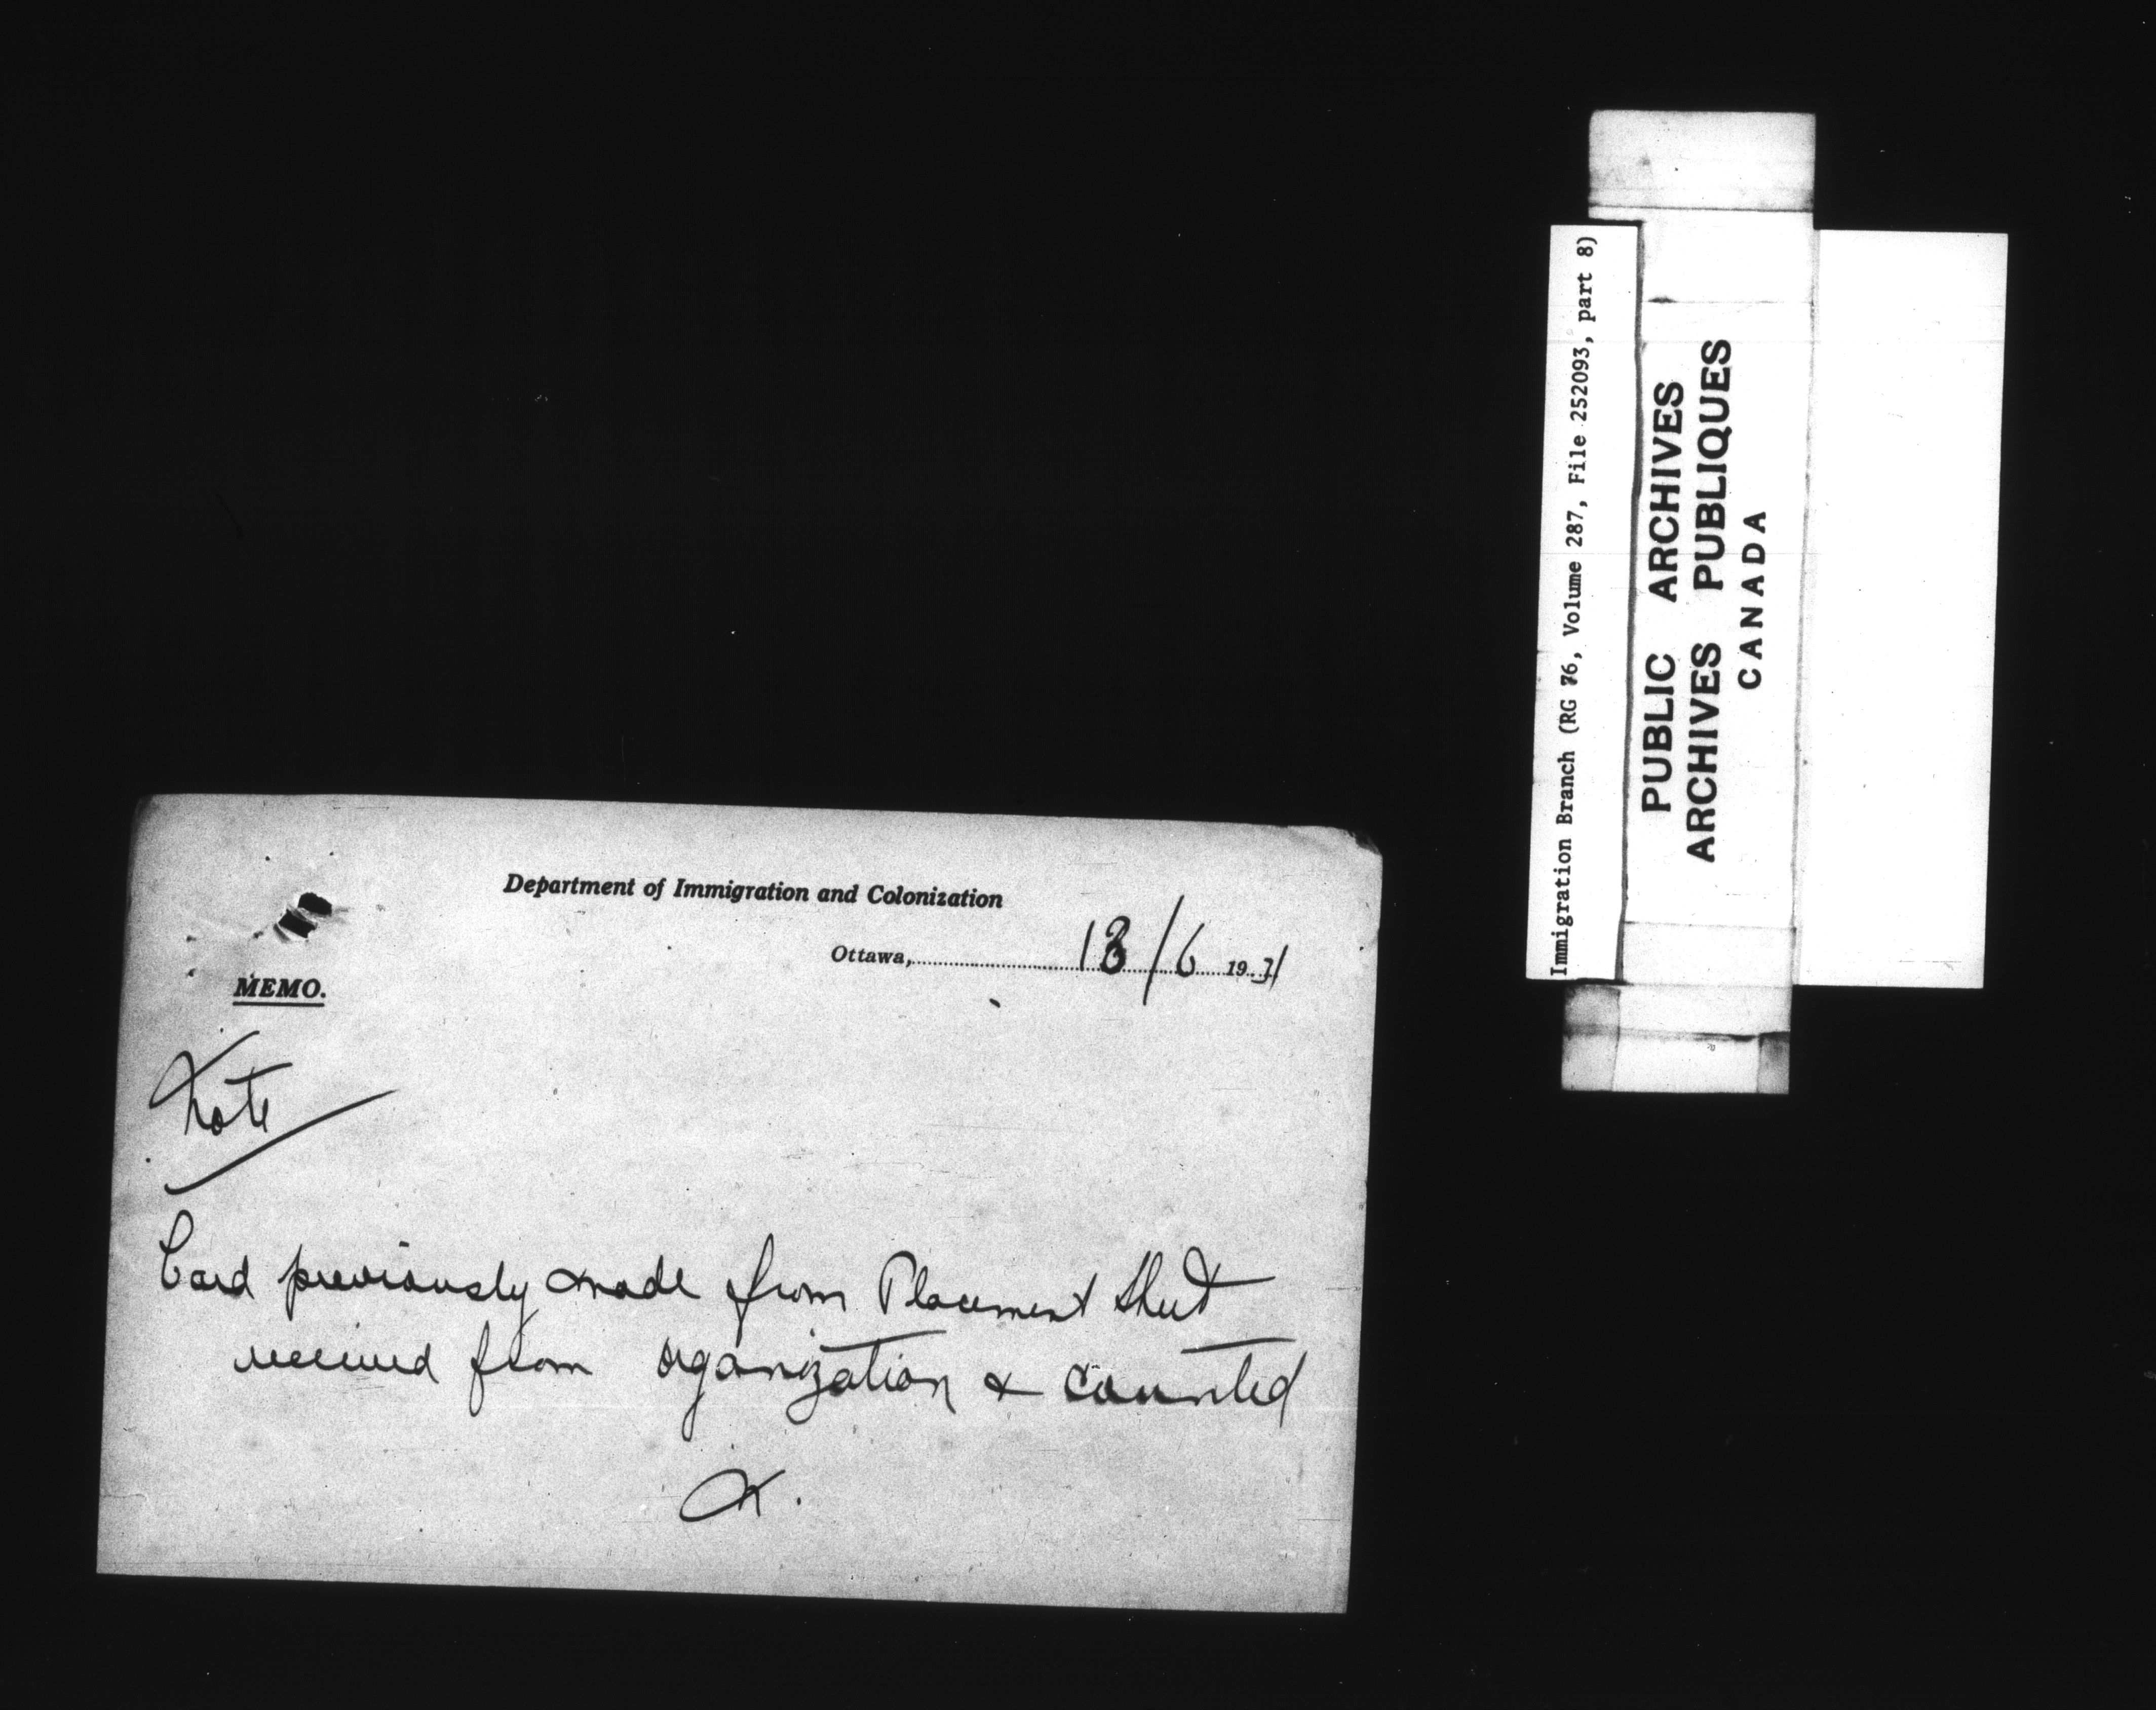 Department of Immigration and Colonization
Ottawa, 18/6 1931
MEMO.
Note
Card previously made from Placement Sheet
received from organization & counted
Immigration Branch (RG 76, Volume 287, File 252093, part 8)
PUBLIC ARCHIVES
ARCHIVES PUBLIQUES
CANADA